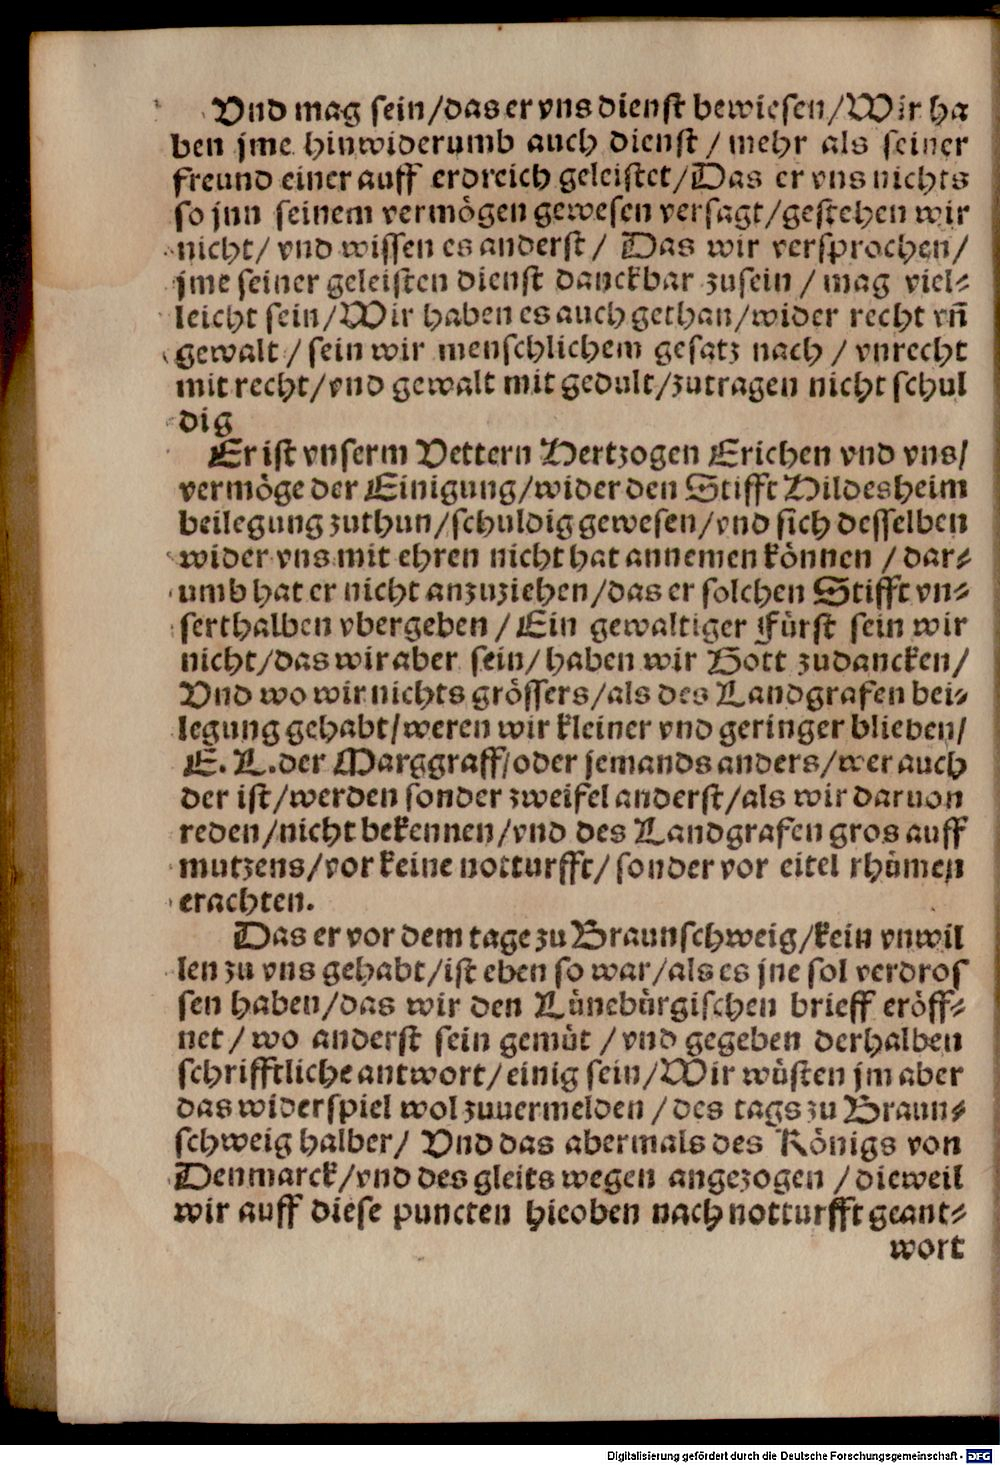 Vnd mag sein/das er vns dienst bewiesen/Wir ha
ben jme hinwiderumb auch dienst / mehr als seiner
freund einer auff erdreich geleistet/Das er vns nichts
so jnn seinem vermögen gewesen versagt/gestehen wir
nicht/ vnd wissen es anderst / Das wir versprochen/
jme seiner geleisten dienst danckbar zusein / mag viel-
leicht sein/Wir haben es auch gethan/wider recht vñ
gewalt / sein wir menschlichem gesatz nach / vnrecht
mit recht/vnd gewalt mit gedult/zutragen nicht schul
dig
Er ist vnserm Vettern Hertzogen Erichen vnd vns/
vermöge der Einigung/wider den Stifft Hildesheim
beilegung zuthun/schuldig gewesen/vnd sich desselben
wider vns mit ehren nicht hat annemen können / dar-
umb hat er nicht anzuziehen/das er solchen Stifft vn-
serthalben vbergeben / Ein gewaltiger Fürst sein wir
nicht/das wir aber sein/haben wir Gott zudancken/
Vnd wo wir nichts grössers/als des Landgrafen bei-
legung gehabt/weren wir kleiner vnd geringer blieben/
E. L. der Marggraff/oder jemands anders/wer auch
der ist/werden sonder zweifel anderst/als wir daruon
reden/nicht bekennen/vnd des Landgrafen gros auff
mutzens/vor keine notturfft/sonder vor eitel rhümen
erachten.
Das er vor dem tage zu Braunschweig/kein vnwil
len zu vns gehabt/ist eben so war/als es jne sol verdros
sen haben/das wir den Lünebürgischen brieff eröff-
net / wo anderst sein gemüt / vnd gegeben derhalben
schrifftliche antwort/einig sein/Wir wüsten jm aber
das widerspiel wol zuuermelden / des tags zu Braun-
schweig halber/ Vnd das abermals des Königs von
Denmarck/vnd des gleits wegen angezogen / dieweil
wir auff diese puncten hieoben nach notturfft geant-
wort
Digitalisierung gefördert durch die Deutsche Forschungsgemeinschaft - DFG